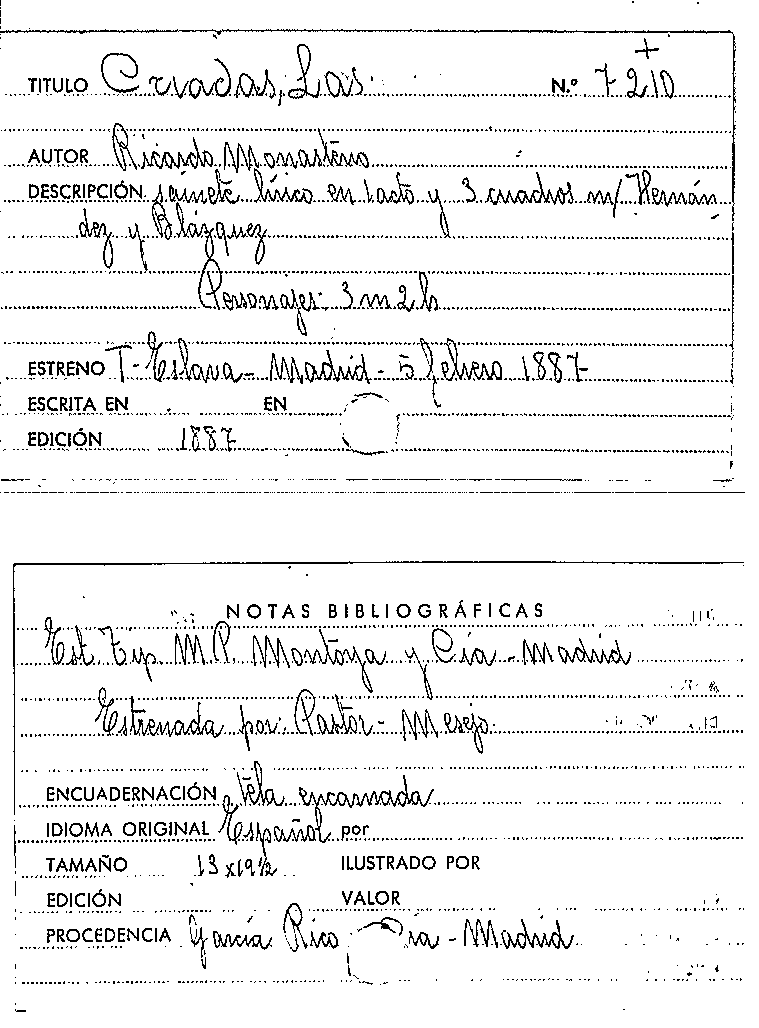 +
TITULO Criadas, Las. N.º 7210
AUTOR Ricardo Monasterio
DESCRIPCIÓN sainete lírico en 1 acto y 3 cuadros m/ Hernán
dez y Blázquez
Personajes: 3 m 2 h
ESTRENO T- Eslava - Madrid - 5 febrero 1887
ESCRITA EN EN
EDICIÓN 1887
NOTAS BIBLIOGRÁFICAS
Est. Tip. M.P. Montoya y Cía - Madrid
Estrenada por: Pastor - Mesejo.
ENCUADERNACIÓN tela encarnada
IDIOMA ORIGINAL Español por
TAMAÑO 13 x 19 ½ ILUSTRADO POR
EDICIÓN VALOR
PROCEDENCIA García Rico Cía - Madrid